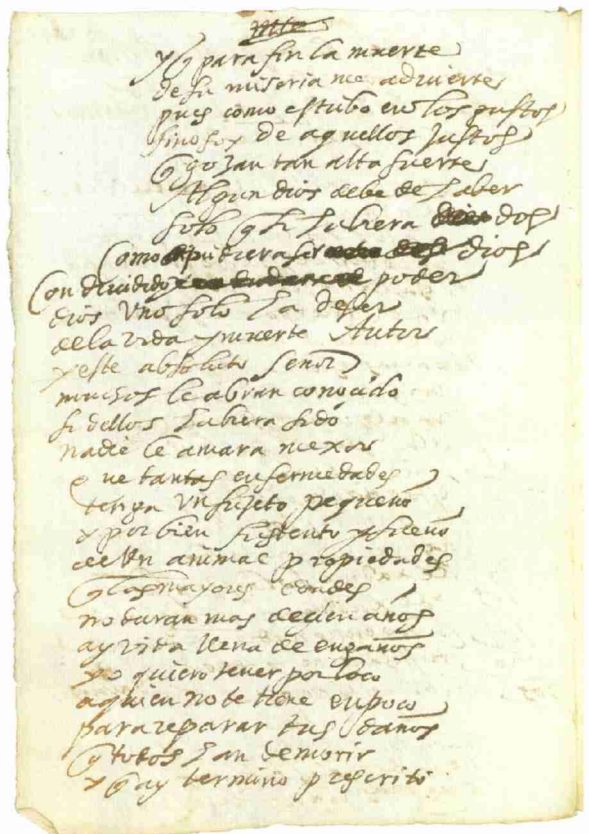 y q para fin la muerte
de su miseria me advierte
pues como estubo en los gustos
sino soy de aquellos justos
q gozan tan alta suerte
Algun dios debe de haber
solo q si hubiera dos
Como pudiera ser dios
Con dividido poder
dios uno solo ha de ser
de la vida y muerte Autor
y este absoluto señor
muchos le abran conocido
si dellos hubiera sido
nadie le amara mexor
que tantas enfermedades
tenga un sujeto pequeño
y por bien sustento y sueño
de un animal propiedades
q las mayores edades
no duran mas de cien años
ay vida llena de engaños
yo quiero tener por loco
a quien no te tiene en poco
para reparar tus daños
q todos han de morir
y q ay termino prescrito